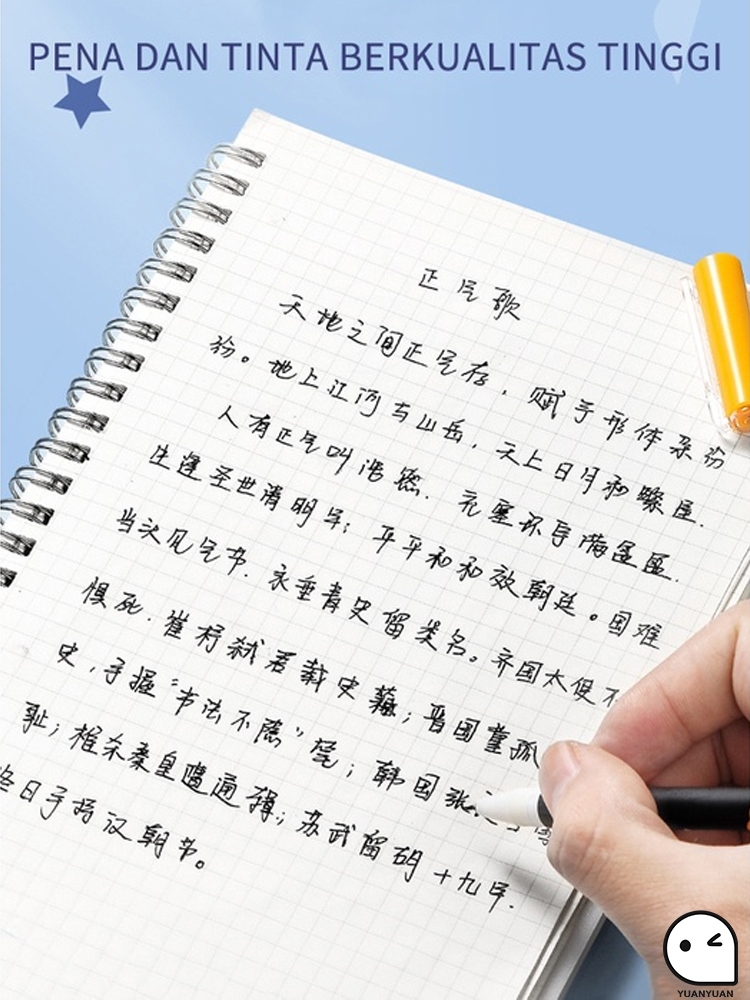 PENA DAN TINTA BERKUALITAS TINGGI
正气歌
天地之间正气存，赋予形体杂份
纷。地上江河与山岳，天上日月和骤星.
人有正气叫浩然. 充塞环导满
生逢圣世清明年；平平和和效朝廷。国难
当头见气节. 永垂青史留英名。齐国太使不
惧死. 崔杼弑君载史藉；晋国董孤
史,手握"书法不隐"笔；韩国张
耻；椎杀秦皇遭通缉；苏武留胡十九年.
终日手持汉朝节。
YUANYUAN